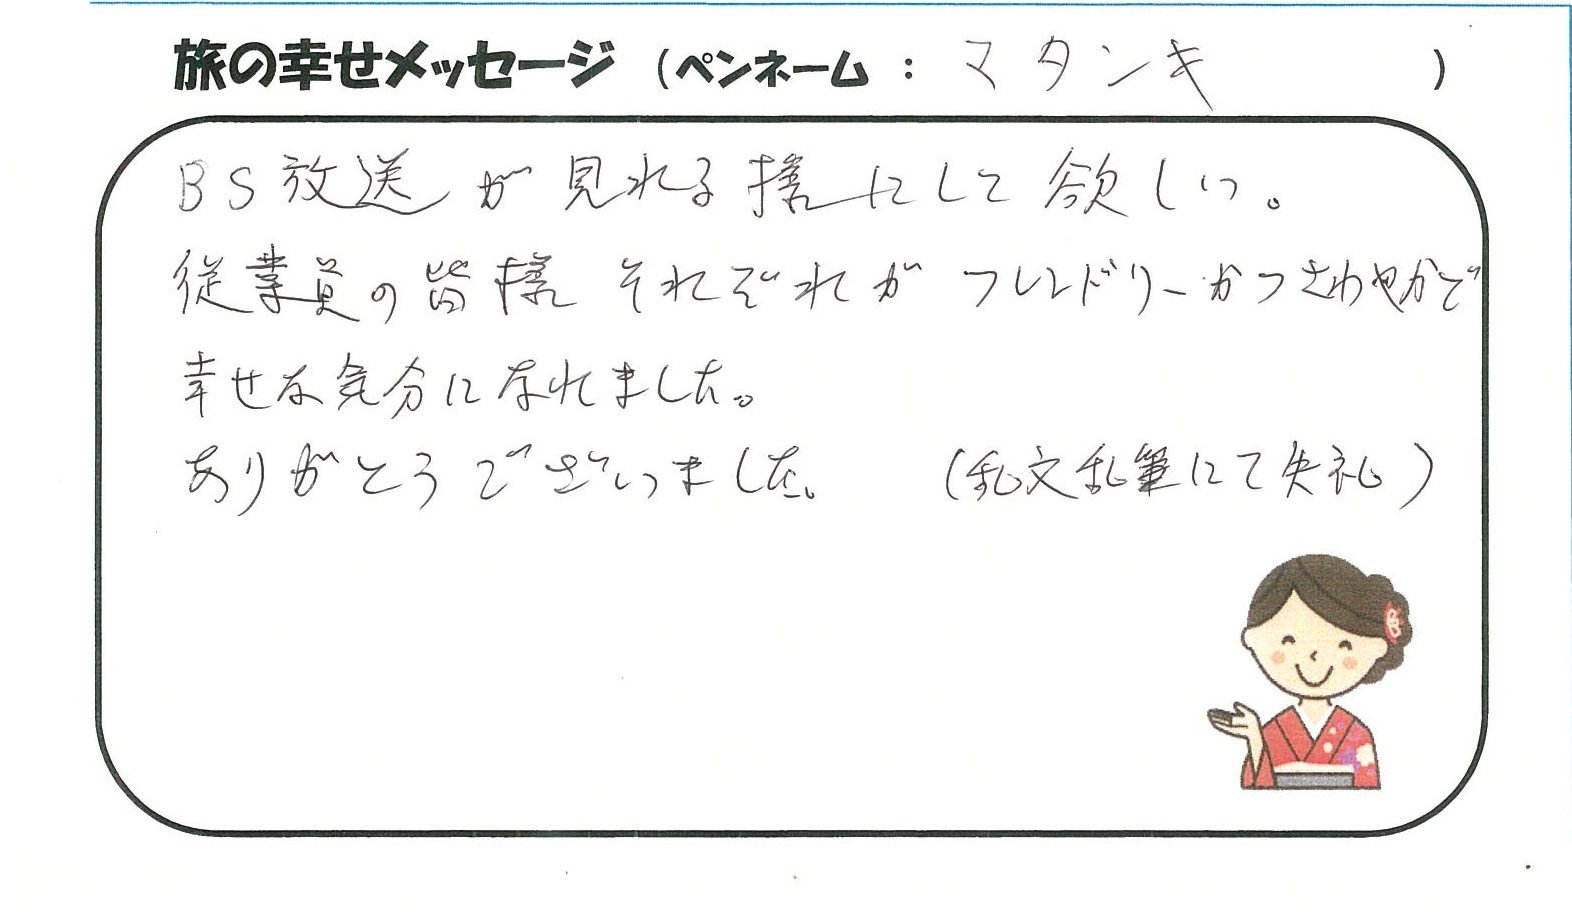 旅の幸せメッセージ（ペンネーム：マタンキ）
BS放送が見れる様にして欲しい。
従業員の皆様それぞれがフレンドリーかつさわやかで
幸せな気分になれました。
ありがとうございました。（乱文乱筆にて失礼）